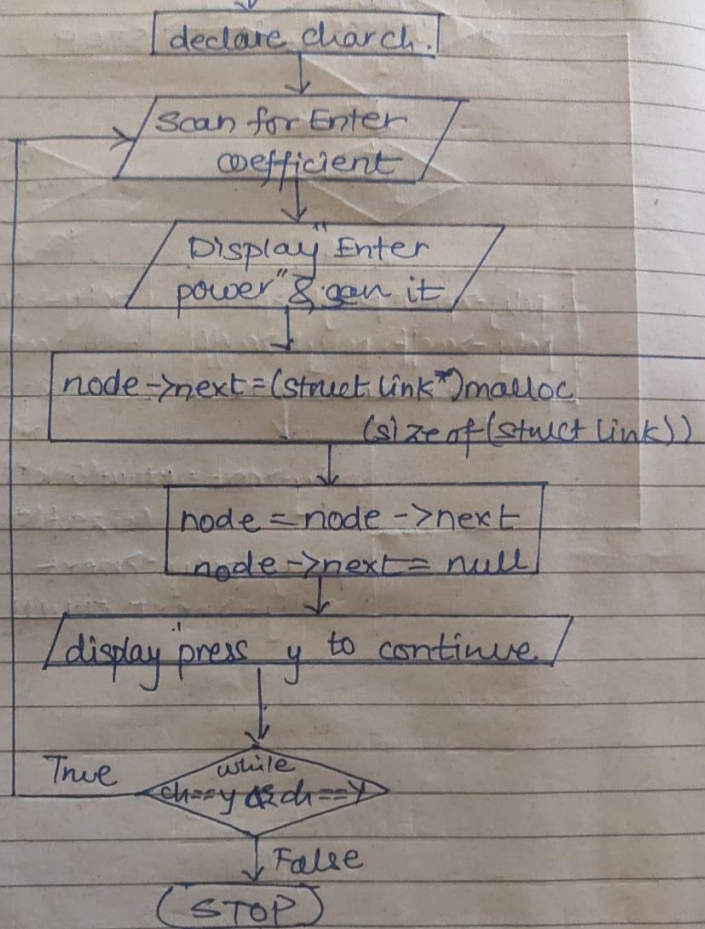 declare char ch.
Scan for Enter
coefficient
Display "Enter
power" & scan it
node->next=(struct link*)malloc
(sizeof(struct link))
node = node ->next
node->next= null
display "press y to continue
True
while
ch==y or ch==Y
False
STOP